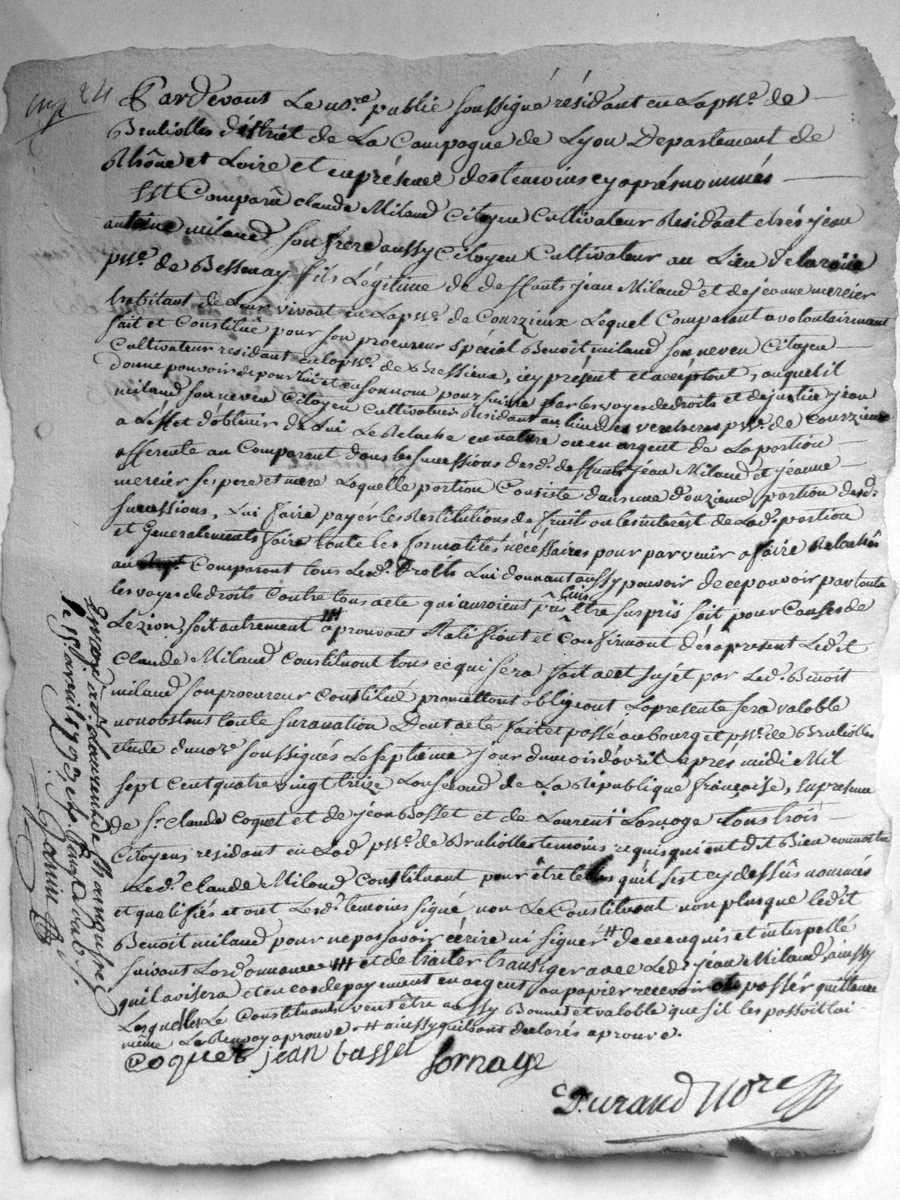 Pardevant Le no.re public soussigné résidant en La p.sse de
Brullolles district de La Campagne de Lyon Departement de
Rhône et Loire et en présence des temoins cy après nommés
Est Comparû Claude Miland Citoyen Cultivateur Residant chés jean
antoine miland son frere aussy Citoyen Cultivateur au Lieu de
p.sse de Bessenay fils Légitime de deffunts jean Miland et de jeanne mercier
habitant de Leur vivant en La p.sse de Courzieux Lequel Comparant a volontairement
fait et Constitué pour son procureur special Benoît miland son neveu Citoyen
Cultivateur residant en La p.sse de Bressieux, icy présent et acceptant, auquel il
donne pouvoir de pour lui et en son nom poursuivre par les voyes de droits et de justice jean
miland son neveu Citoyen Cultivateur Residant au lieu des p.sse de Courzieux
a L'effet d'obtenir de Lui Le Relache en nature ou en argent de La portion
afferente au Comparant dans les successions desd. deffunts jean Miland et jeanne
mercier ses pere et mere Laquelle portion Consiste dans une d'ouzieme portion desd.
successions, Lui faire payér les Restitutions de fruits ou les interêt de Lad. portion
et Generalements faire toute les formalités nécessaires pour parvenir a faire
au Comparant tous Lesd. Droits Lui donnant aussy pouvoir de ce pouvoir par toute
les voyes de droits Contre tous acte qui auroient p.us lui être surpris soit pour Causes de
Lézion, soit autrement aprouvant Ratiffiant et Confirmant dès a present Ledit
Claude Miland Constituant tous ce qui sera fait a cet sujet par Led. Benoit
miland son procureur Constitué promettant obligeant La presente sera valable
nonobstant toute surannation Dont acte fait et passé au bourg et p.sse de Brullolles
etude du no.re soussignés Le septième jour du mois d'avril après midi Mil
sept cent quatre vingt treize Lan second de La République française, En presence
de S.r Claude Coquet et de jean Basset et de Laurent Sornage tous trois
Citoyens residant en Lad. p.sse de Brullolles temoins requis qui ont dit Bien connoitre
Led. Claude Miland Constituant pour être tel qu'il s'est cy dessûs nommés
et qualifiés et ont Lesd. temoins signé non Le Constituant non plus que Ledit
Benoît miland pour ne pas savoir écrire ni signer de ce enquis et interpellé
suivant L'ordonnance et de traiter transiger avec Led. jean Miland, ainssy
qu'il avisera et en cas de payement en argent ou papier recevoir et passér quittance
Lesquelles Le Constituant veut être aussy Bonnes et valable que s'il les passoit Lui
même Le Renvoy aprouvé # ainssy qu'ils ont declarés aprouvé.
Coquet jean basset Sornage
Durand No.re